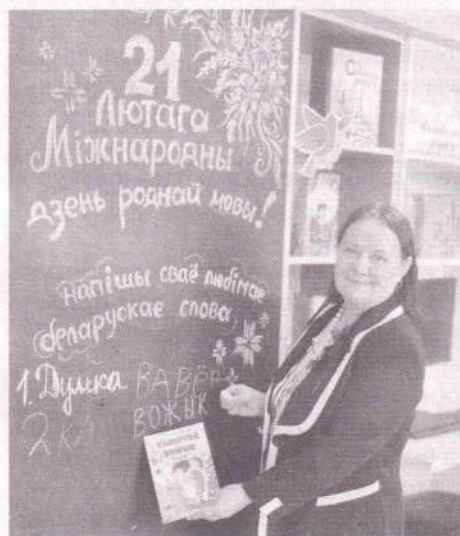 21
Лютага
Міжнародны
дзень роднай мовы!
напішы сваё любімае
беларускае слова
1. Думка ВАВЁР
2 КА ВОЖЫК